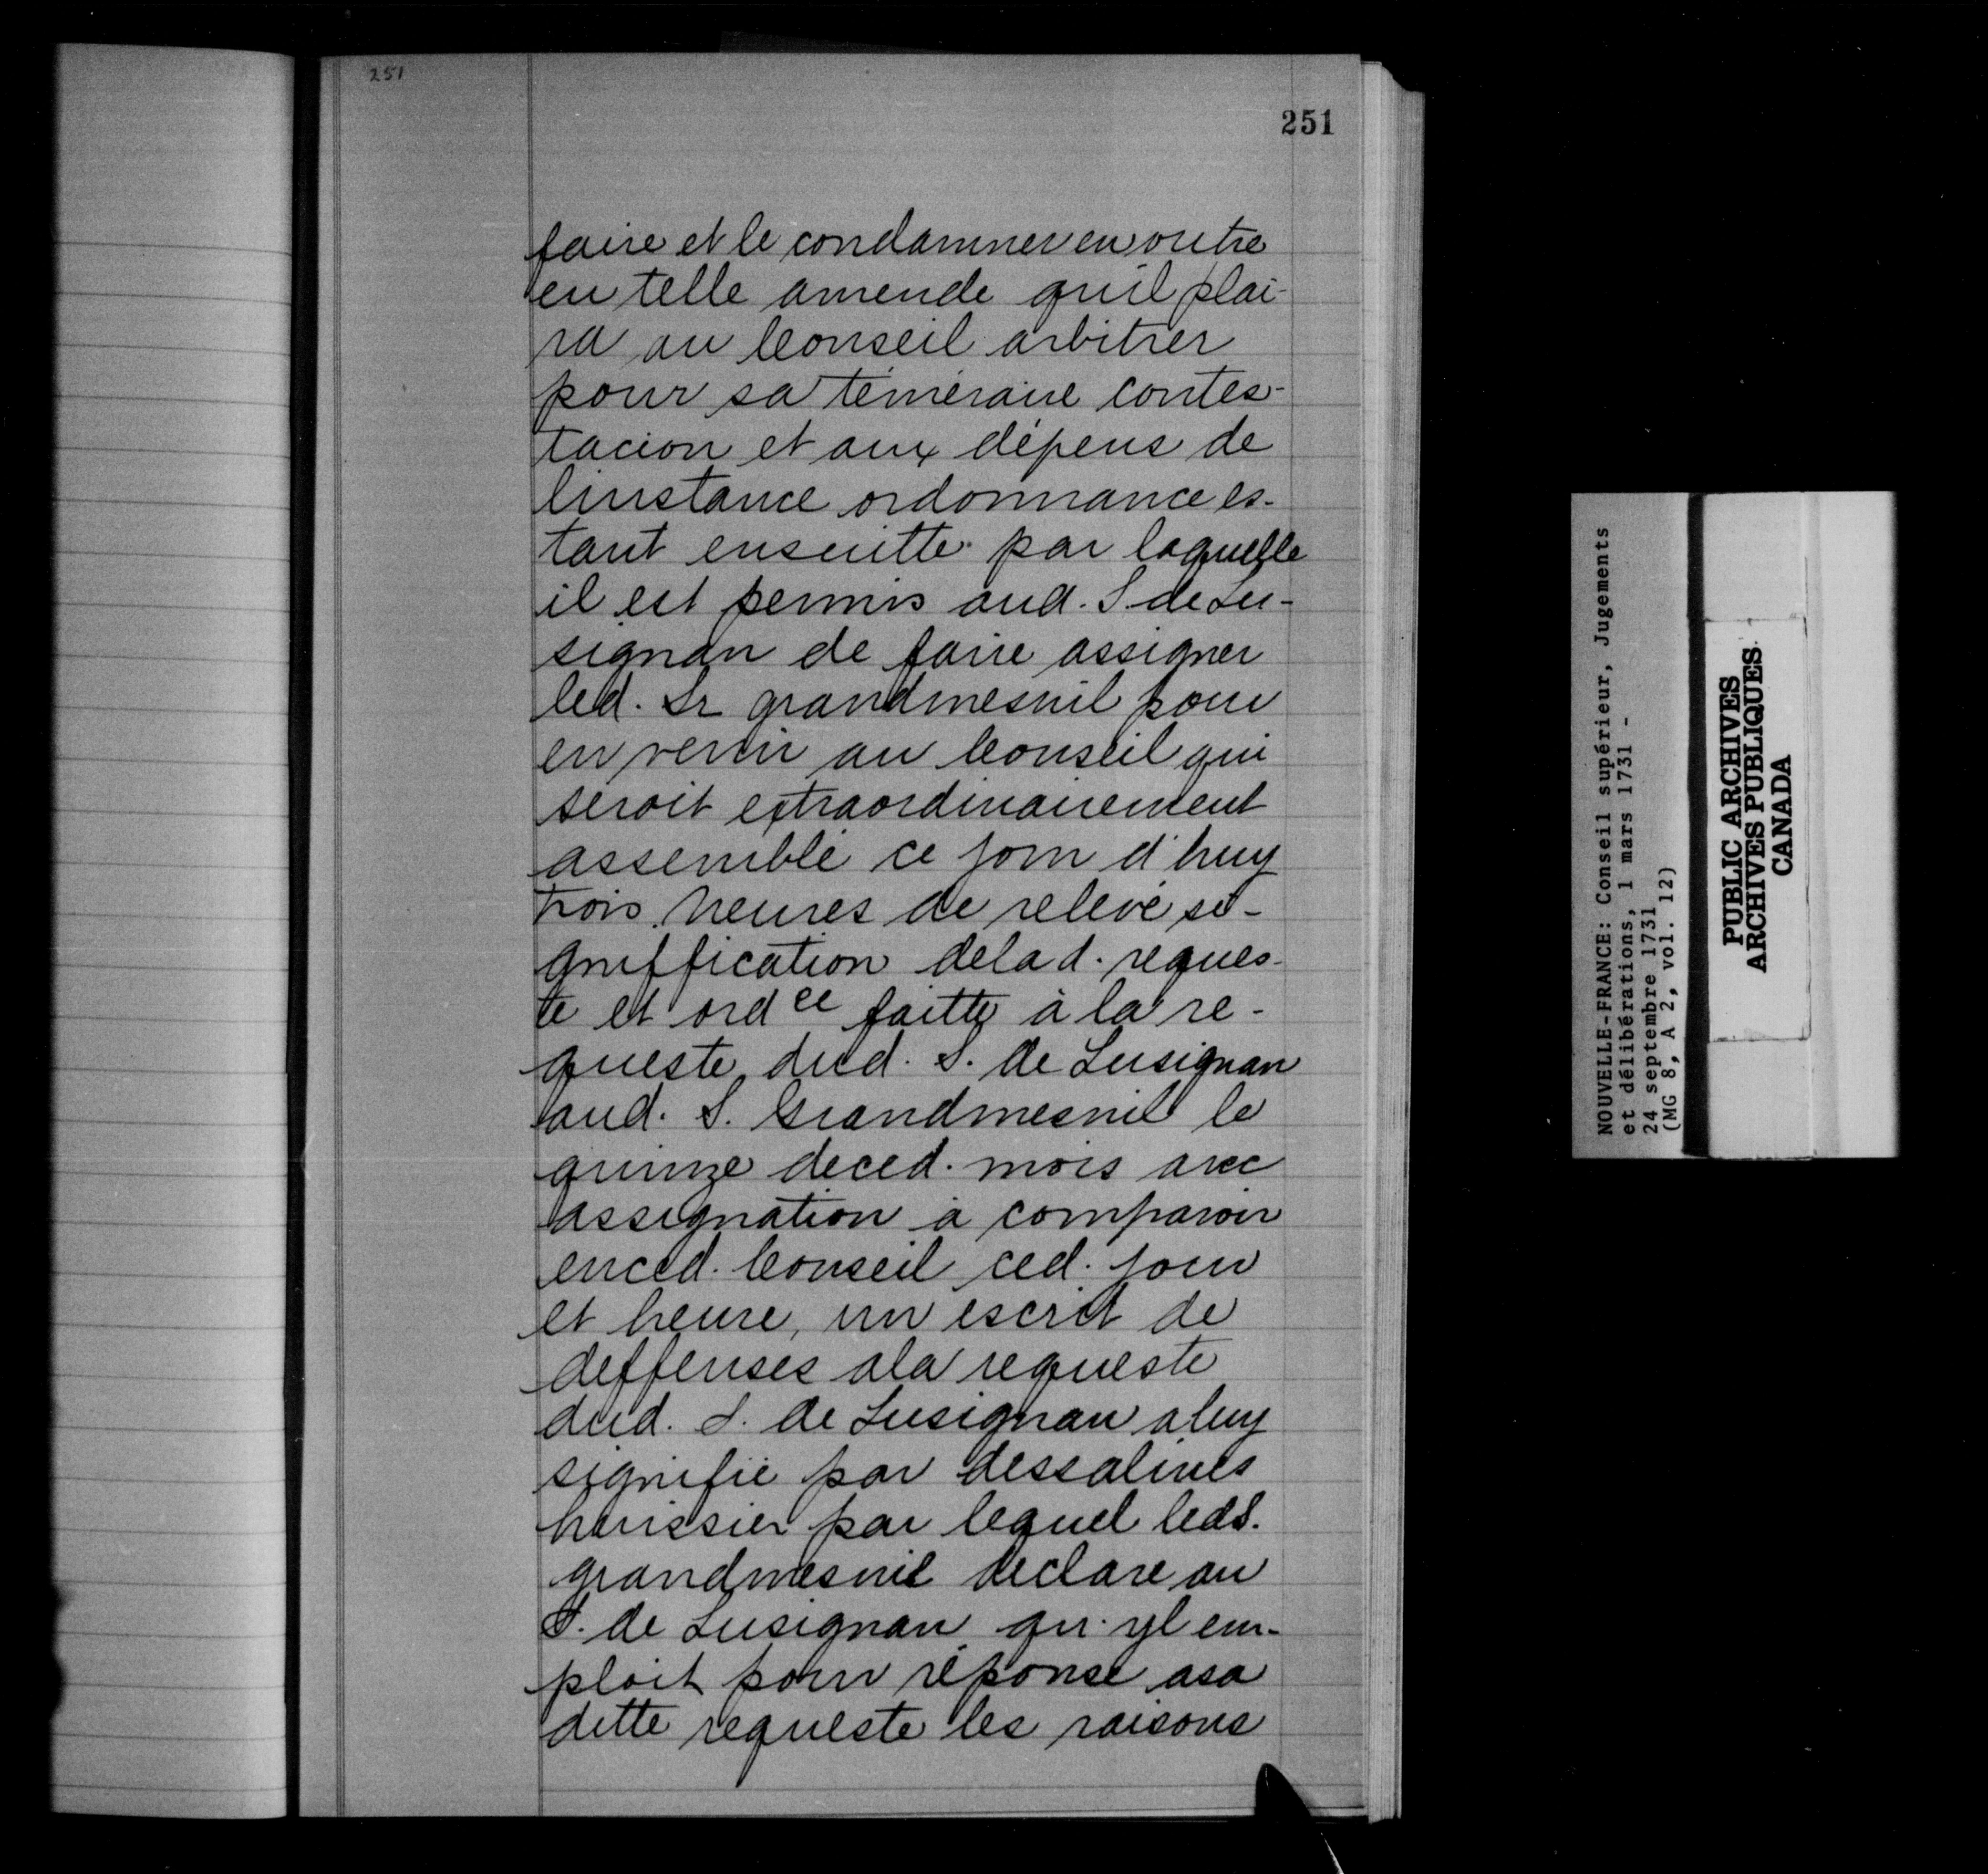 251
251
faire et le condamner en outre
en telle amende quil plai-
ra au Conseil arbitrer
pour sa témeraire contes-
tacion et aux dépens de
linstance ordonnance es-
tant ensuitte par laquelle
il est permis aud. S. de Lu-
signan de faire assigner
led. Sr grandmesnil pour
en venir au Conseil qui
seroit extraordinairement
assemblé ce jour d'huy
trois heures de relevé si-
gniffication delad. reques-
te et ordce faitte à la re-
queste dud. S. de Lusignan
aud. S. Grandmesnil le
quinze deced. mois avec
assignation à comparoir
enced. Conseil ced. jour
et heure, un escrit de
deffenses ala requeste
dud. S. de Lusignan aluy
signifié par dessalines
huissier par lequel led S.
grandmesnil declare au
S. de Lusignan qu'yl em-
ploit pour réponse asa
ditte requeste les raisons
NOUVELLE-FRANCE: Conseil supérieur, Jugements
et délibérations, 1 mars 1731 -
24 septembre 1731
(MG 8, A 2, vol. 12)
PUBLIC ARCHIVES
ARCHIVES PUBLIQUES
CANADA